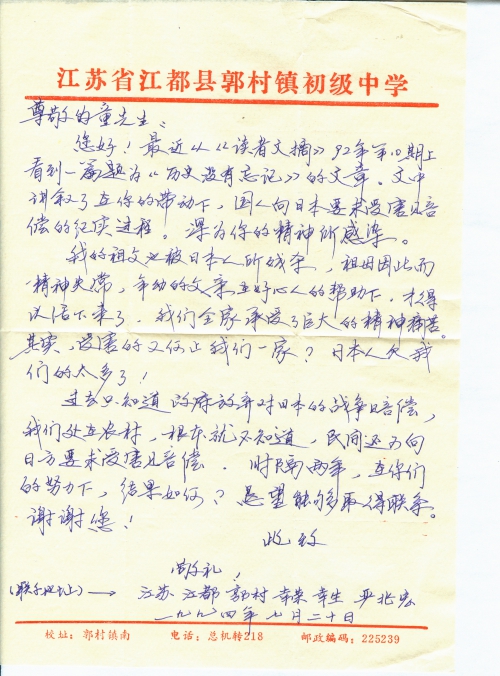 江苏省江都县郭村镇初级中学
尊敬的童先生：
您好！最近从《读者文摘》92年第10期上
看到一篇题为《历史没有忘记》的文章。文中
讲叙了在你的带动下，国人向日本要求受害赔
偿的纪实过程。深为你的精神所感染。
我的祖父必被日本人所残杀，祖母因此而
精神失常，年幼的父亲在好心人的帮助下，才得
以活下来了。我们全家承受了巨大的精神痛苦。
其实，受害的又何止我们一家？日本人欠我
们的太多了！
过去只知道政府放弃对日本的战争赔偿，
我们处在农村，根本就不知道，民间还可向
日方要求受害赔偿．时隔两年，在你们
的努力下，结果如何？恳望能够取得联系。
谢谢您！
此致
敬礼！
(联系地址)→ 江苏 江都 郭村
一九九四年七月二十日
校址：郭村镇南 电话：总机转218 邮政编码：225239